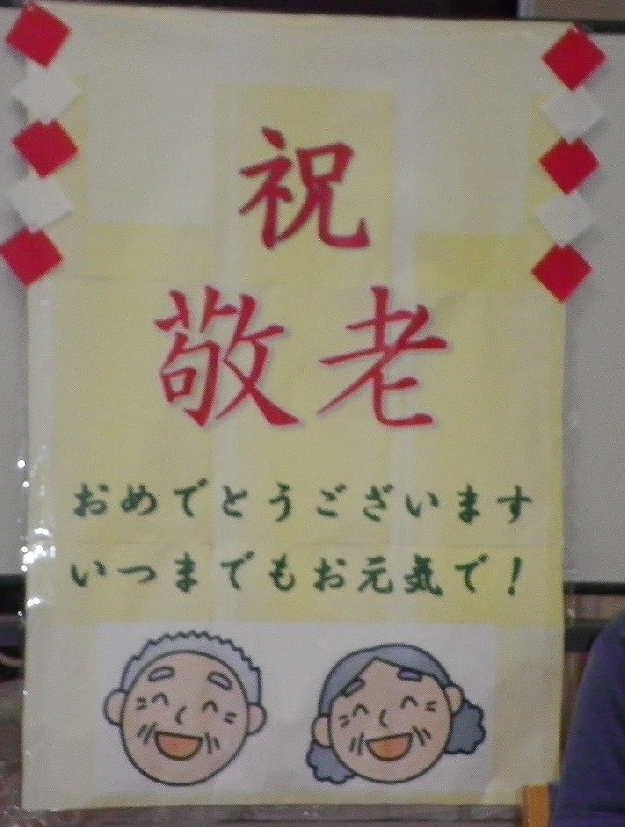 祝
敬老
おめでとうございます
いつまでもお元気で!